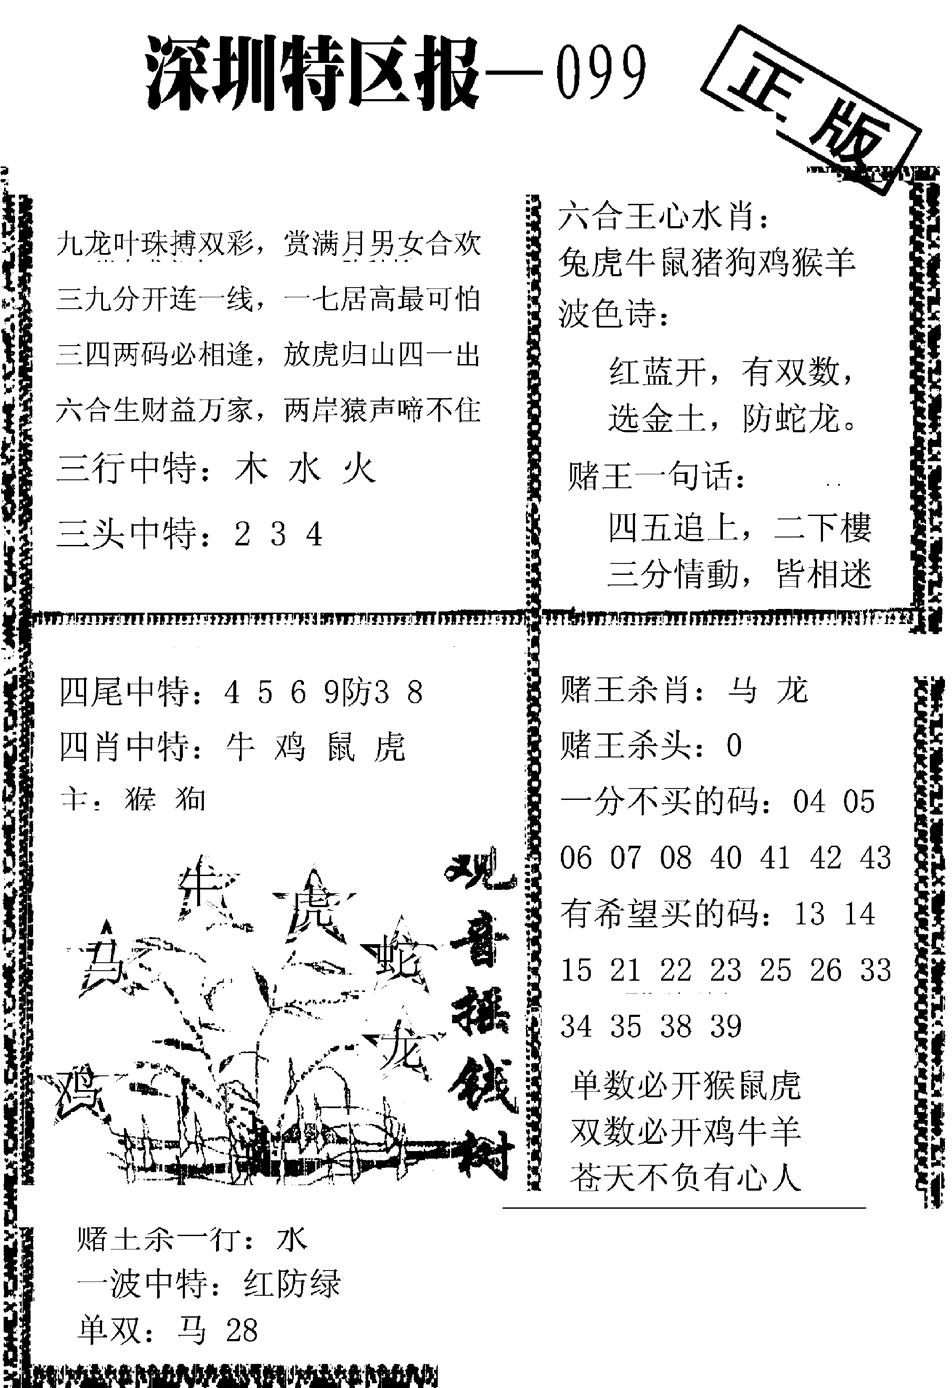 深圳特区报—099
正版
九龙叶珠搏双彩，赏满月男女合欢
三九分开连一线，一七居高最可怕
三四两码必相逢，放虎归山四一出
六合生财益万家，两岸猿声啼不住
三行中特：木 水 火
三头中特：2 3 4
六合王心水肖：
兔虎牛鼠猪狗鸡猴羊
波色诗：
红蓝开，有双数，
选金土，防蛇龙。
赌王一句话：
四五追上，二下樓
三分情動，皆相迷
四尾中特：4 5 6 9防3 8
四肖中特：牛 鸡 鼠 虎
主：猴 狗
牛
虎
马
蛇
龙
鸡
观音摇钱树
赌王杀肖：马 龙
赌王杀头：0
一分不买的码：04 05
06 07 08 40 41 42 43
有希望买的码：13 14
15 21 22 23 25 26 33
34 35 38 39
单数必开猴鼠虎
双数必开鸡牛羊
苍天不负有心人
赌王杀一行：水
一波中特：红防绿
单双：马 28